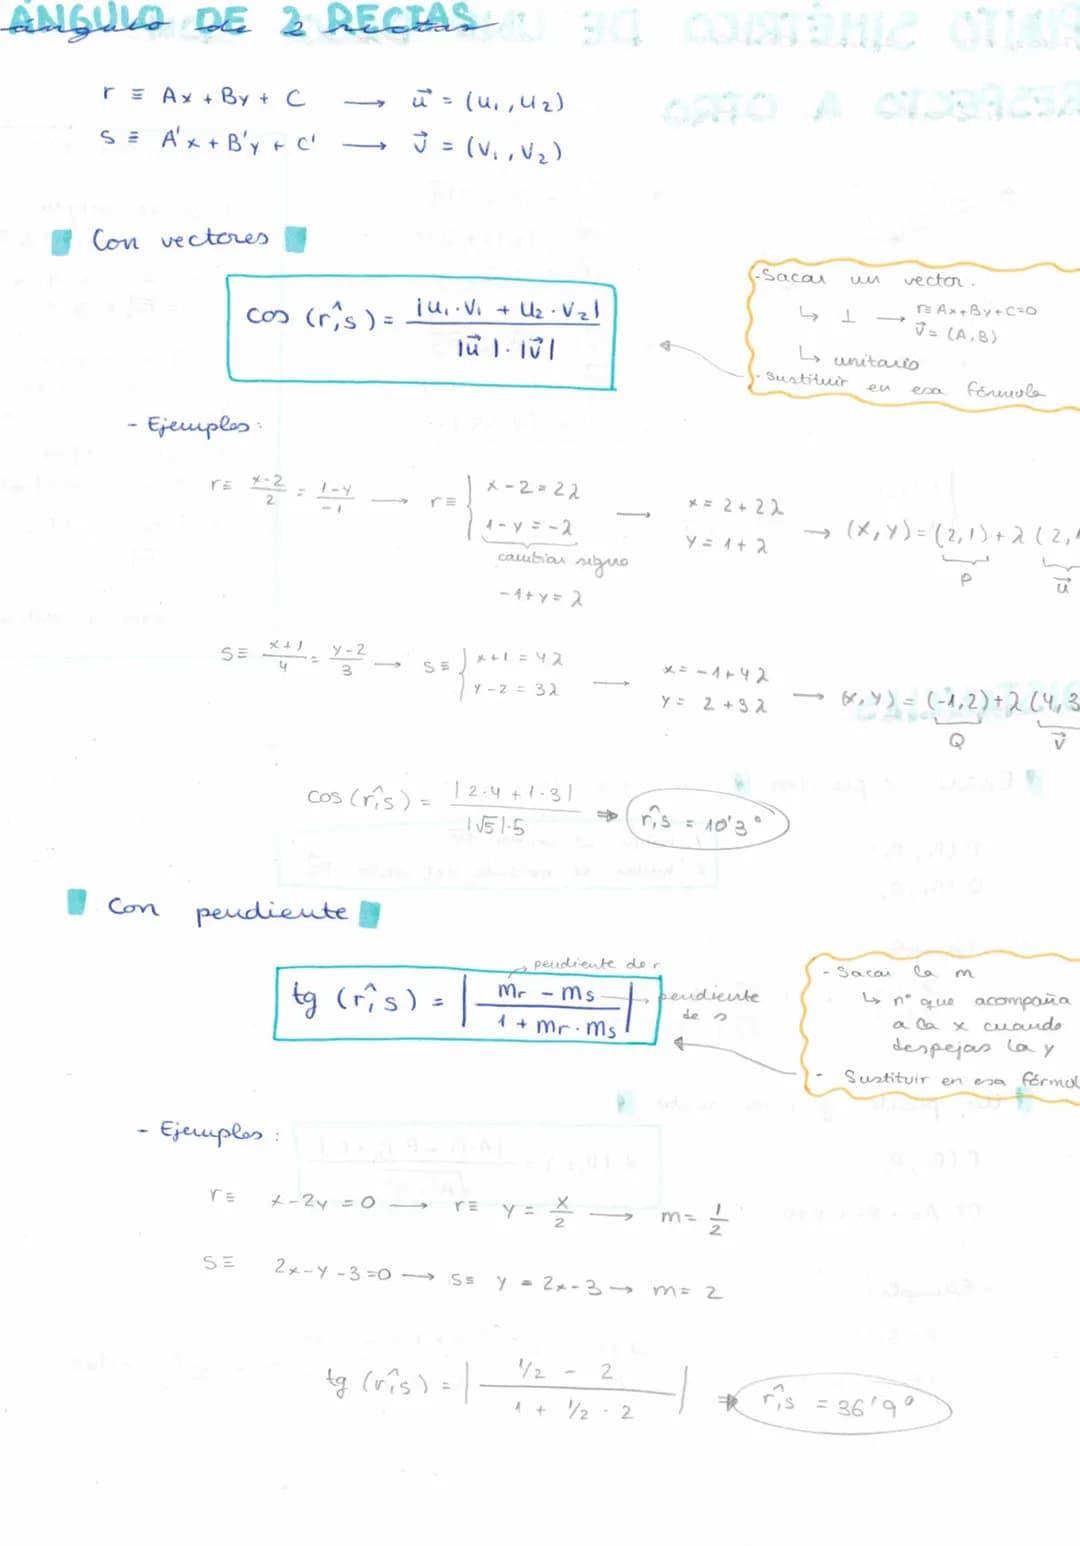 ÁNGULO DE 2 RECTAS
ángulo de 2 rectas
r ≡ Ax + By + C → u⃗ = (u₁, u₂)
s ≡ A'x + B'y + C' → v⃗ = (v₁, v₂)
Con vectores
cos (r,^s) = |u₁·v₁ + u₂·v₂| / |u⃗|·|v⃗|
- Sacar un vector.
↳ ⊥ → r≡ Ax+By+C=0
v⃗ = (A,B)
↳ unitario
- Sustituir en esa fórmula
- Ejemplos:
r≡ x-2/2 = 1-y/-1 → r≡ { x-2=2λ
1-y=-λ
cambiar signo
-1+y=λ
→ x=2+2λ
y=1+λ
→ (x,y)=(2,1)+λ(2,1
P u⃗
s≡ x+1/4 = y-2/3 → s≡ { x+1=4λ
y-2=3λ
→ x=-1+4λ
y=2+3λ
→ (x,y)=(-1,2)+λ(4,3
Q v⃗
cos (r,^s) = |2·4+1·3| / |√5|·5 ⇒ r,^s = 10'3°
Con pendiente
tg (r,^s) = | mr - ms / 1 + mr·ms |
pendiente de r
pendiente de s
- Sacar la m
↳ nº que acompaña
a la x cuando
despejas la y
- Sustituir en esa fórmul
- Ejemplos:
r≡ x-2y=0 → r≡ y= x/2 → m= 1/2
s≡ 2x-y-3=0 → s≡ y=2x-3 → m=2
tg (r,^s) = | 1/2 - 2 / 1 + 1/2 · 2 | ⇒ r,^s = 36'9°